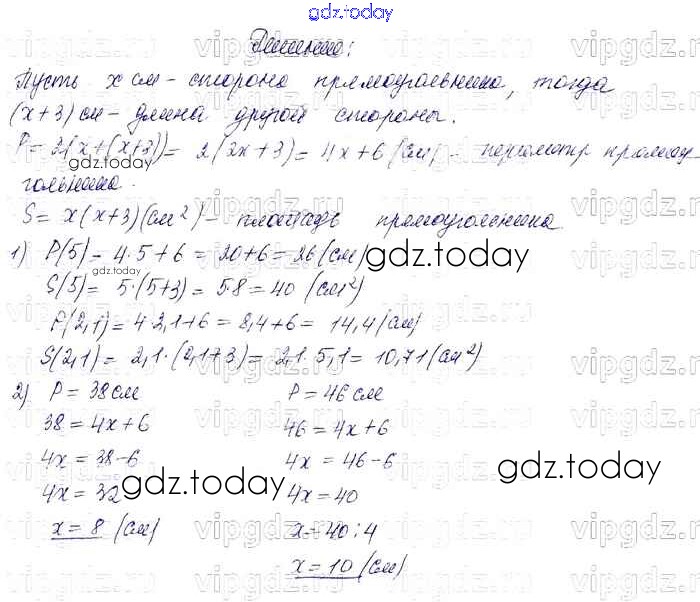 gdz.today
Решение:
Пусть x см – сторона прямоугольника, тогда
(x+3) см – длина другой стороны.
P = 2(x+(x+3)) = 2(2x+3) = 4x+6 (см) – периметр прямоу
гольника.
gdz.today
S = x(x+3)(см²) – площадь прямоугольника.
1) P(5) = 4·5+6 = 20+6 = 26 (см) gdz.today
gdz.today
S(5) = 5·(5+3) = 5·8 = 40 (см²)
P(2,1) = 4·2,1+6 = 8,4+6 = 14,4 (см)
S(2,1) = 2,1·(2,1+3) = 2,1·5,1 = 10,71 (см²)
2) P = 38 см P = 46 см
38 = 4x+6 46 = 4x+6
4x = 38-6 4x = 46-6
gdz.today
4x = 32 4x = 40
gdz.today
x = 8 (см) x = 40:4
x = 10 (см)
vipgdz.ru